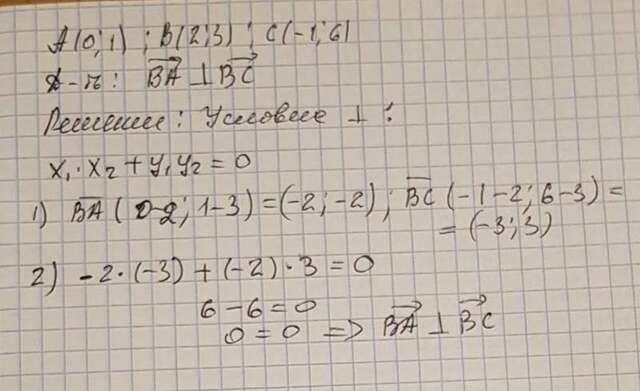 A(0;1) ; B(2;3) ; C(-1;6)
Д-ть: BA ⊥ BC
Решение: Условие ⊥ :
x₁·x₂ + y₁y₂ = 0
1) BA (0-2; 1-3) = (-2; -2) ; BC (-1-2; 6-3) =
= (-3; 3)
2) -2·(-3) + (-2)·3 = 0
6 - 6 = 0
0 = 0 => BA ⊥ BC